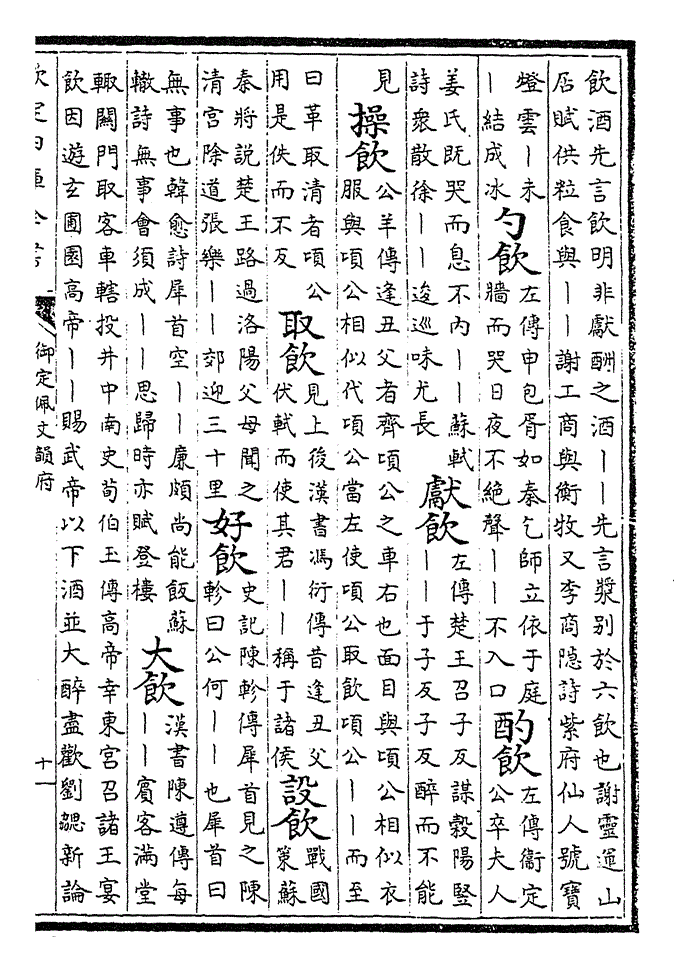 飲酒先言飲明非獻酬之酒丨丨先言漿别於六飲也謝靈運山
居賦供粒食與丨丨謝工商與衡牧又李商隱詩紫府仙人號寶
燈雲丨未
丨結成冰
勺飲
左傳申包胥如秦乞師立依于庭
牆而哭日夜不絶聲丨丨不入口
酌飲
左傳衞定
公卒夫人
姜氏既哭而息不内丨丨蘇軾
詩衆散徐丨丨逡巡味尤長
獻飲
左傳楚王召子反謀榖陽豎
丨丨于子反子反醉而不能
見
操飲
公羊傳逢丑父者齊項公之車右也面目與項公相似衣
服與項公相似代項公當左使項公取飲項公丨丨而至
曰革取清者項公
用是佚而不反
取飲
見上後漢書馮衍傳昔逢丑父
伏軾而使其君丨丨稱于諸侯
設飲
戰國
策蘇
秦將説楚王路過洛陽父母聞之
清宫除道張樂丨丨郊迎三十里
好飲
史記陳軫傳犀首見之陳
軫曰公何丨丨也犀首曰
無事也韓愈詩犀首空丨丨廉頗尚能飯蘇
轍詩無事會須成丨丨思歸時亦賦登樓
大飲
漢書陳遵傳每
丨丨賓客滿堂
輙闗門取客車轄投井中南史荀伯玉傳高帝幸東宫召諸王宴
飲因遊玄圃園高帝丨丨賜武帝以下酒並大醉盡歡劉勰新論
欽定四庫全書
御定佩文韻府
十一